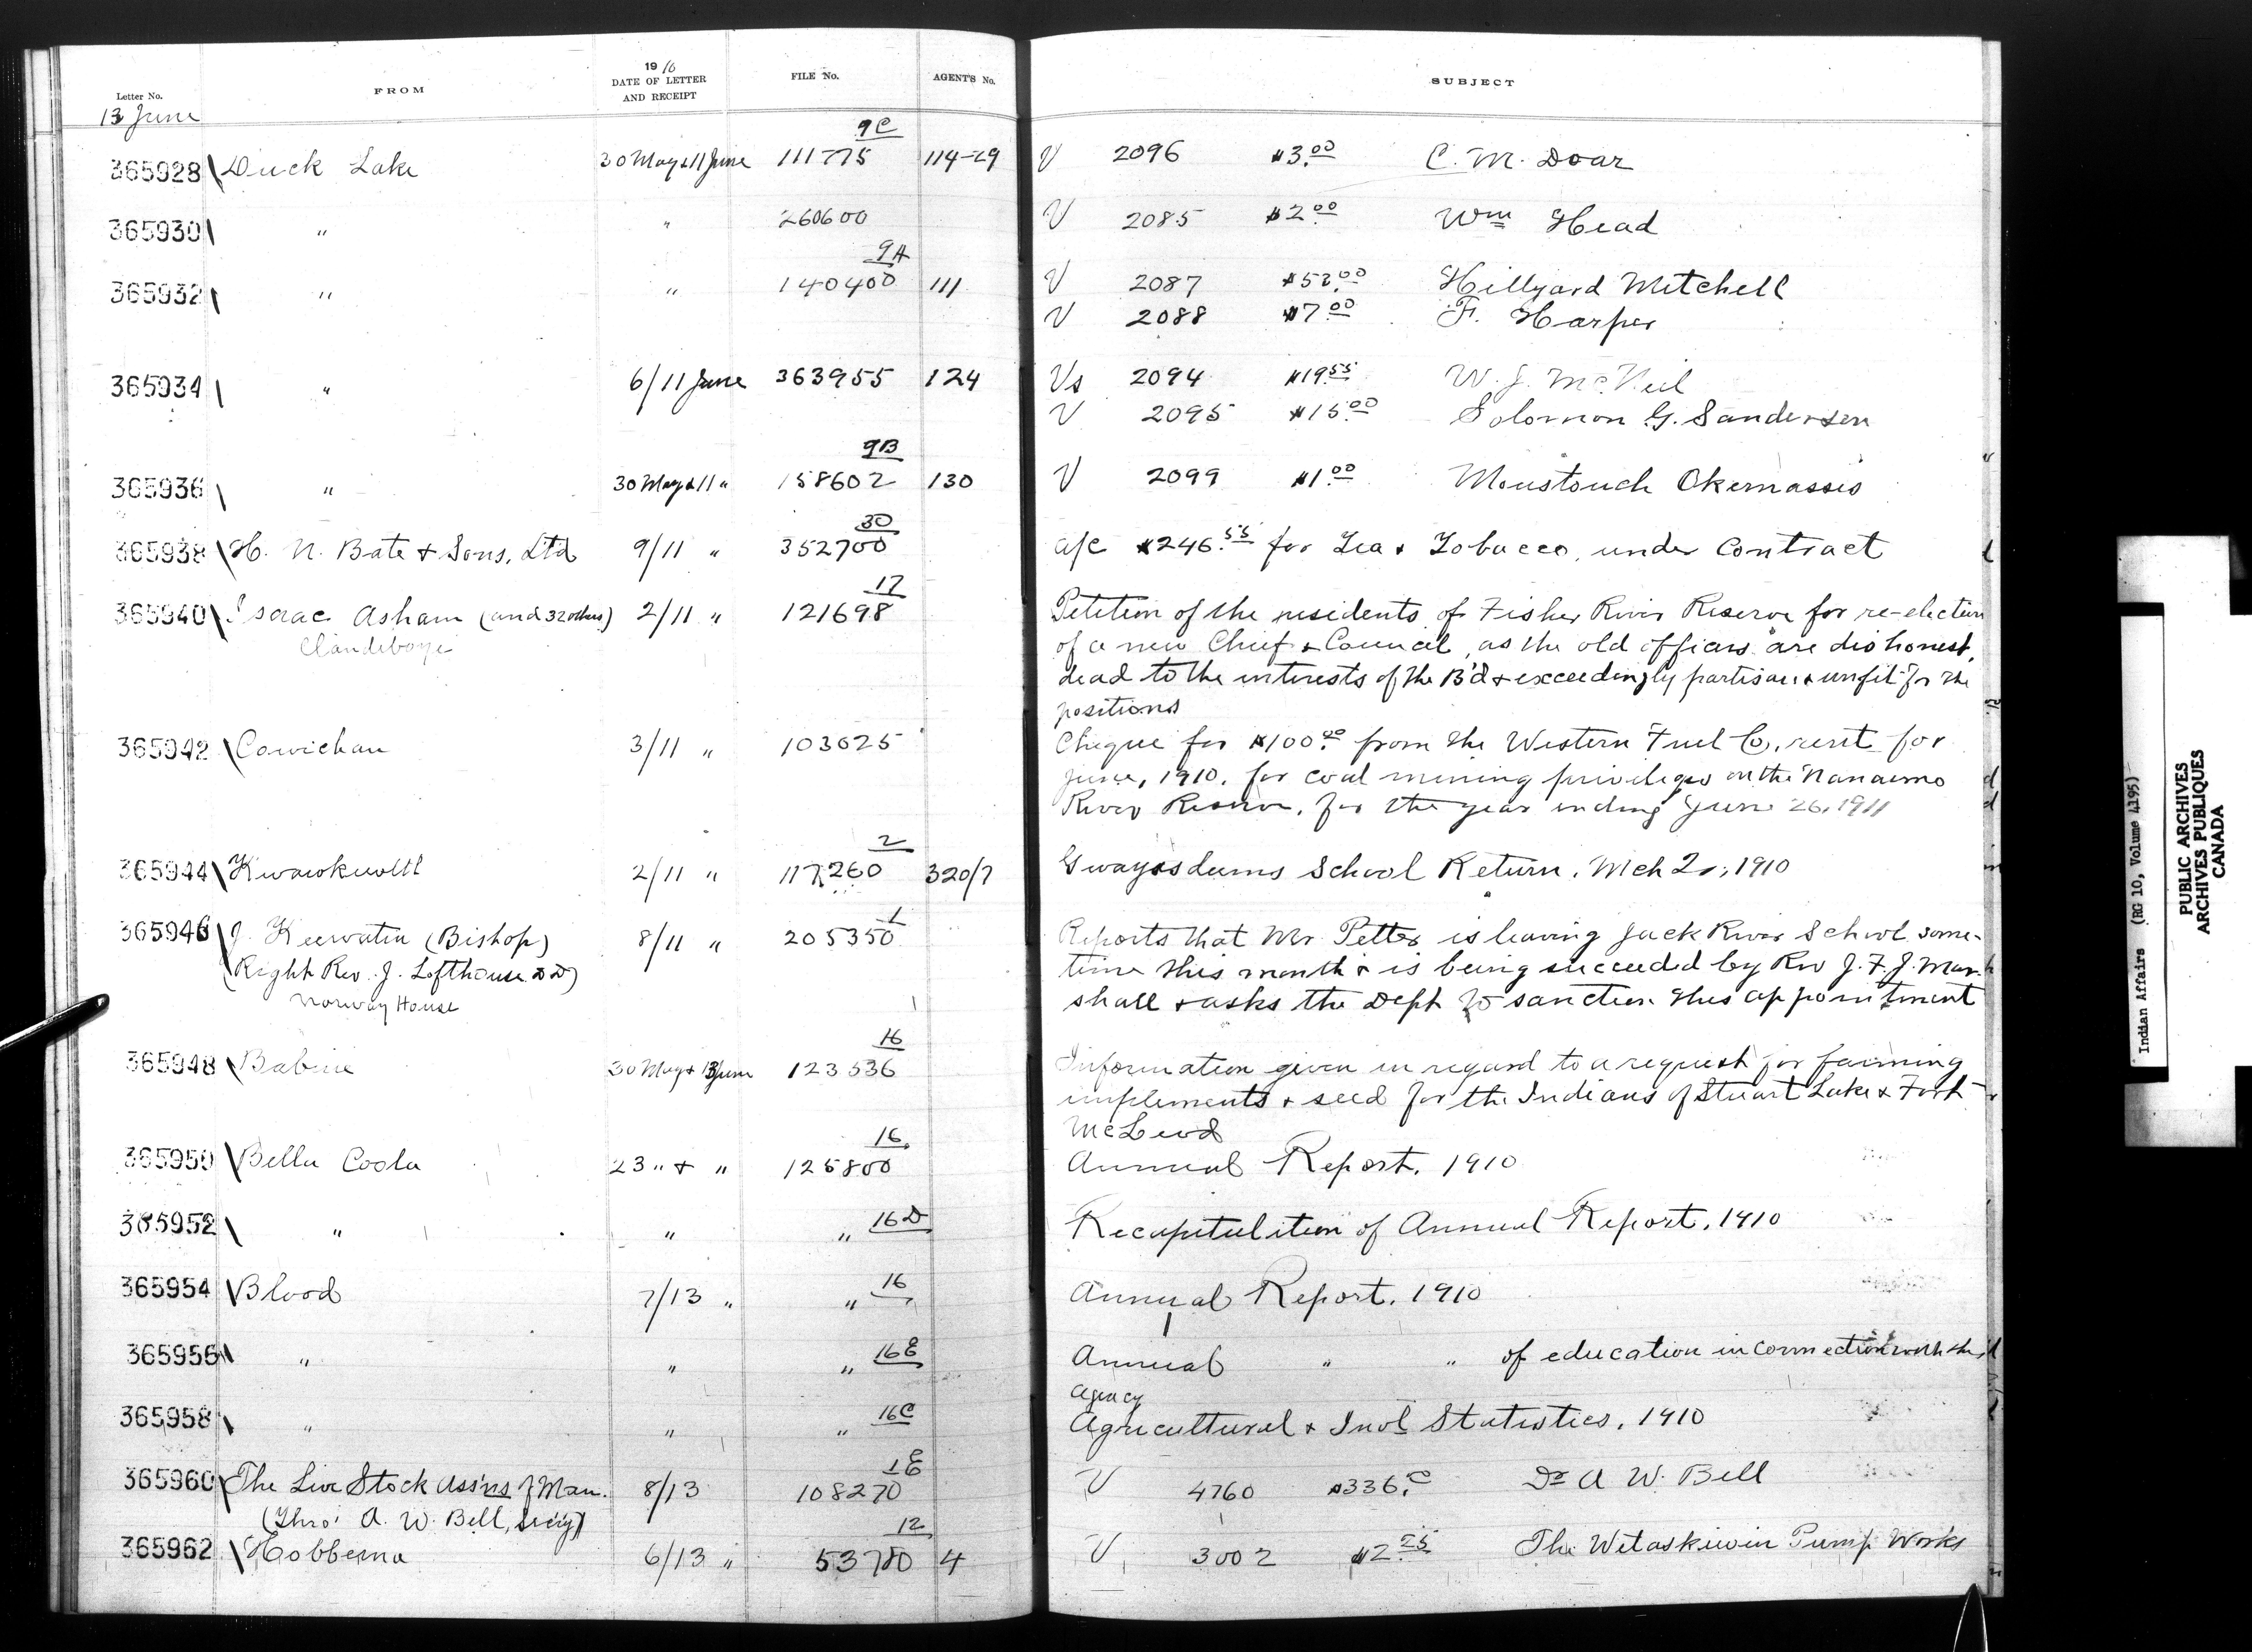 Letter No. FROM 1910 DATE OF LETTER AND RECEIPT FILE No. AGENT'S No. SUBJECT
13 June
9C
365928 Duck Lake 30 May & 11 June 111775 114-29 V 2096 $3.00 C. M. Doar
365930 " " 260600 V 2085 $2.00 Wm Head
9A
365932 " " 140400 111 V 2087 $52.00 Hillyard Mitchell
V 2088 $7.00 F. Harper
365934 " 6/11 June 363955 124 Vs 2094 $19.55 W. J. McNeil
V 2095 $15.00 Solomon G. Sanderson
9B
365936 " 30 May & 11 " 158602 130 V 2099 $1.00 Moustouch Okemassis
30
365938 H. N. Bate & Sons, Ltd 9/11 " 352700 a/c $246.55 for Tea & Tobacco, under Contract
17
365940 Isaac Asham (and 32 others) 2/11 " 121698 Petition of the residents of Fisher River Reserve for re-election
Clandeboye of a new Chief & Council, as the old officers are dishonest,
dead to the interests of the B'd & exceedingly partisan & unfit for the
positions
365942 Cowichan 3/11 " 103625 Cheque for $100.00 from the Western Fuel Co, rent for
June, 1910, for coal mining privileges on the Nanaimo
River Reserve, for the year ending June 26, 1911
2
365944 Kwawkewlth 2/11 " 117260 320/7 Gwaysdums School Return, Mch 2r, 1910
1
365946 J. Keewatin (Bishop) 8/11 " 205350 Reports that Mr Petter is leaving Jack River School some-
(Right Rev. J. Lofthouse D D) time this month & is being succeeded by Rev J. F. J. Mar-
Norway House shall & asks the Dept to sanction this appointment
16
365948 Babine 30 May & 13 June 123536 Information given in regard to a request for farming
implements & seed for the Indians of Stuart Lake & Fort
McLeod
16
365950 Bella Coola 23 " & " 125800 Annual Report, 1910
365952 " " " 16D Recapitulation of Annual Report, 1910
365954 Blood 7/13 " " 16 Annual Report, 1910
365956 " " " 16E Annual " " of education in connection with the
Agency
365958 " " " 16C Agricultural & Indl Statistics, 1910
1E
365960 The Live Stock Ass'ns of Man. 8/13 108270 V 4760 $336.00 Dr A W. Bell
(Thro' A. W. Bell, Sec'y)
12
365962 Hobbema 6/13 " 53780 4 V 3002 $2.25 The Wetaskiwin Pump Works
Indian Affairs (RG 10, Volume 4195)
PUBLIC ARCHIVES
ARCHIVES PUBLIQUES
CANADA